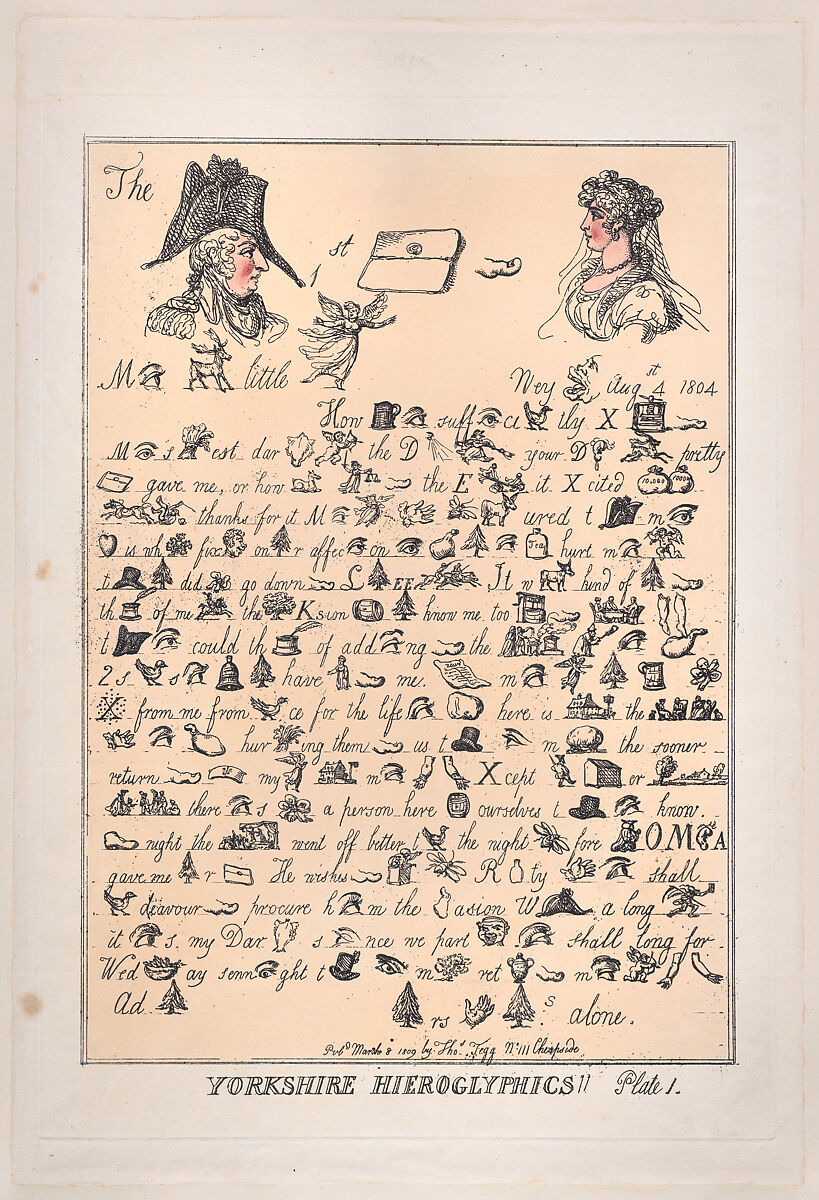 The
1 st
M little
Wey Aug st 4 1804
How suff ci tly X
M s est dar the D your D pretty
gave me, or how the E it X cited 10,000
thanks for it M ured t m
is wh fix on r affec on Tea hurt m
t did go down L EE It w kind of
th of me the K sion know me too
t could th of add ng the
2 s s have me. m
X from me from ce for the life here is the
hur ing them us t m the sooner
return my m X cept or
there s a person here ourselves t know
night the went off better t the night fore OM A
gave me r He wishes R ty shall
deavour procure h m the asion W a long
it s, my Dar s nce we part shall long for
Wed ay senn ght t m ret m
Ad rs s alone.
Pubd March 8 1809 by Thos Tegg No 111 Cheapside
YORKSHIRE HIEROGLYPHICS!! Plate 1.